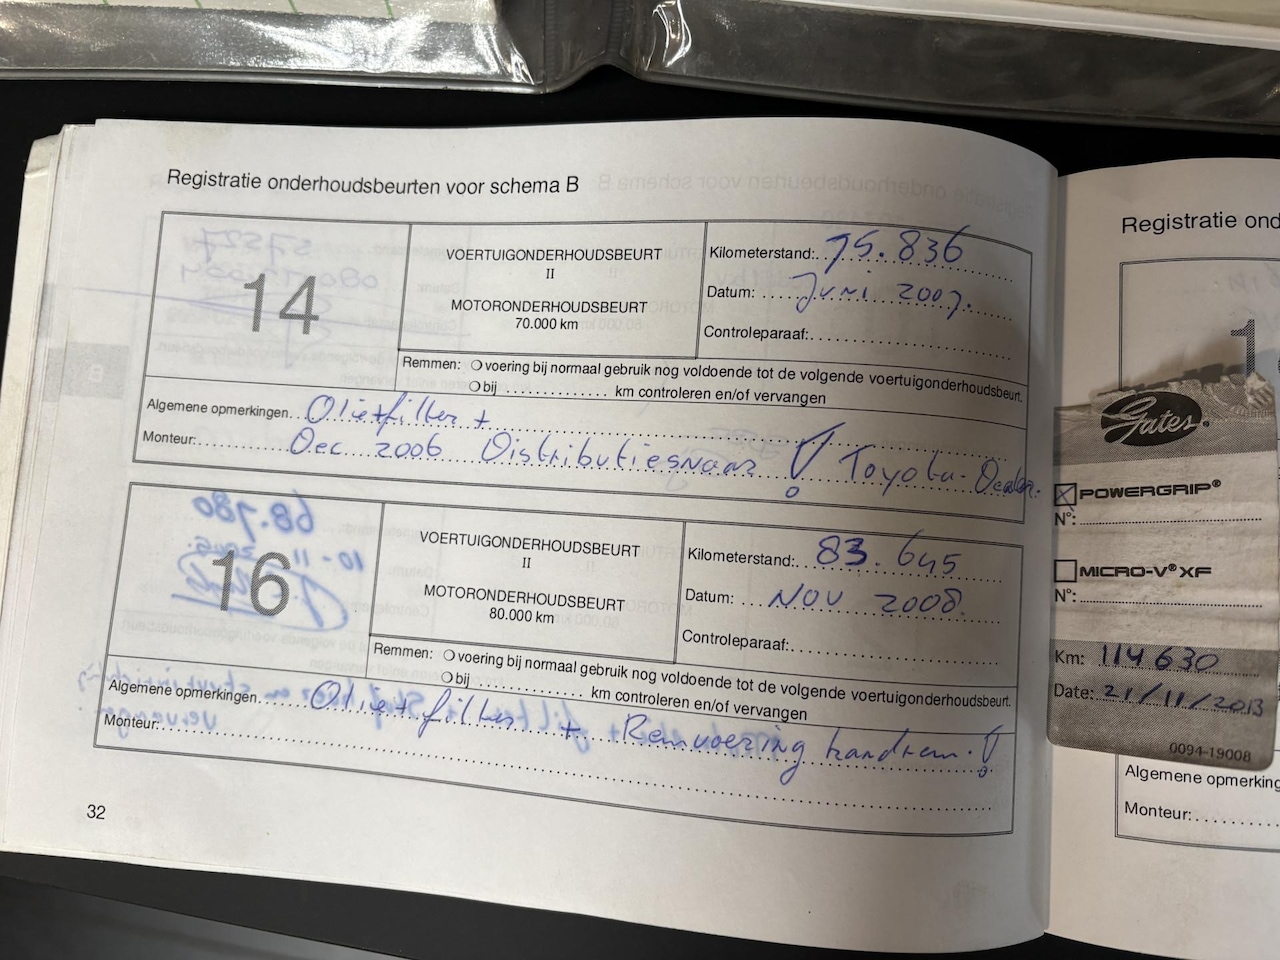 Registratie onderhoudsbeurten voor schema B
14
VOERTUIGONDERHOUDSBEURT
II
MOTORONDERHOUDSBEURT
70.000 km
Kilometerstand: 75.836
Datum: Juni 2007.
Controleparaaf:
Remmen: voering bij normaal gebruik nog voldoende tot de volgende voertuigonderhoudsbeurt.
bij km controleren en/of vervangen
Algemene opmerkingen Olie+filter +
Monteur: Dec 2006 Distributiesnaar ! Toyota-Dealer.
16
VOERTUIGONDERHOUDSBEURT
II
MOTORONDERHOUDSBEURT
80.000 km
Kilometerstand: 83.645
Datum: Nov 2008.
Controleparaaf:
Remmen: voering bij normaal gebruik nog voldoende tot de volgende voertuigonderhoudsbeurt.
bij km controleren en/of vervangen
Algemene opmerkingen Olie+filter + Remvoering handrem. !
Monteur:
32
Registratie ond
1
Gates®
POWERGRIP®
N°:
MICRO-V® XF
N°:
Km: 114630
Date: 21/11/2013
0094-19008
Algemene opmerking
Monteur: